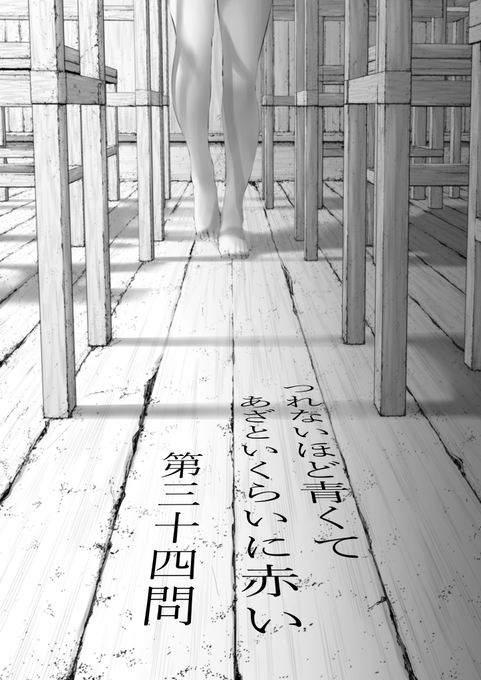 つれないほど青くて
あざといくらいに赤い
第三十四問